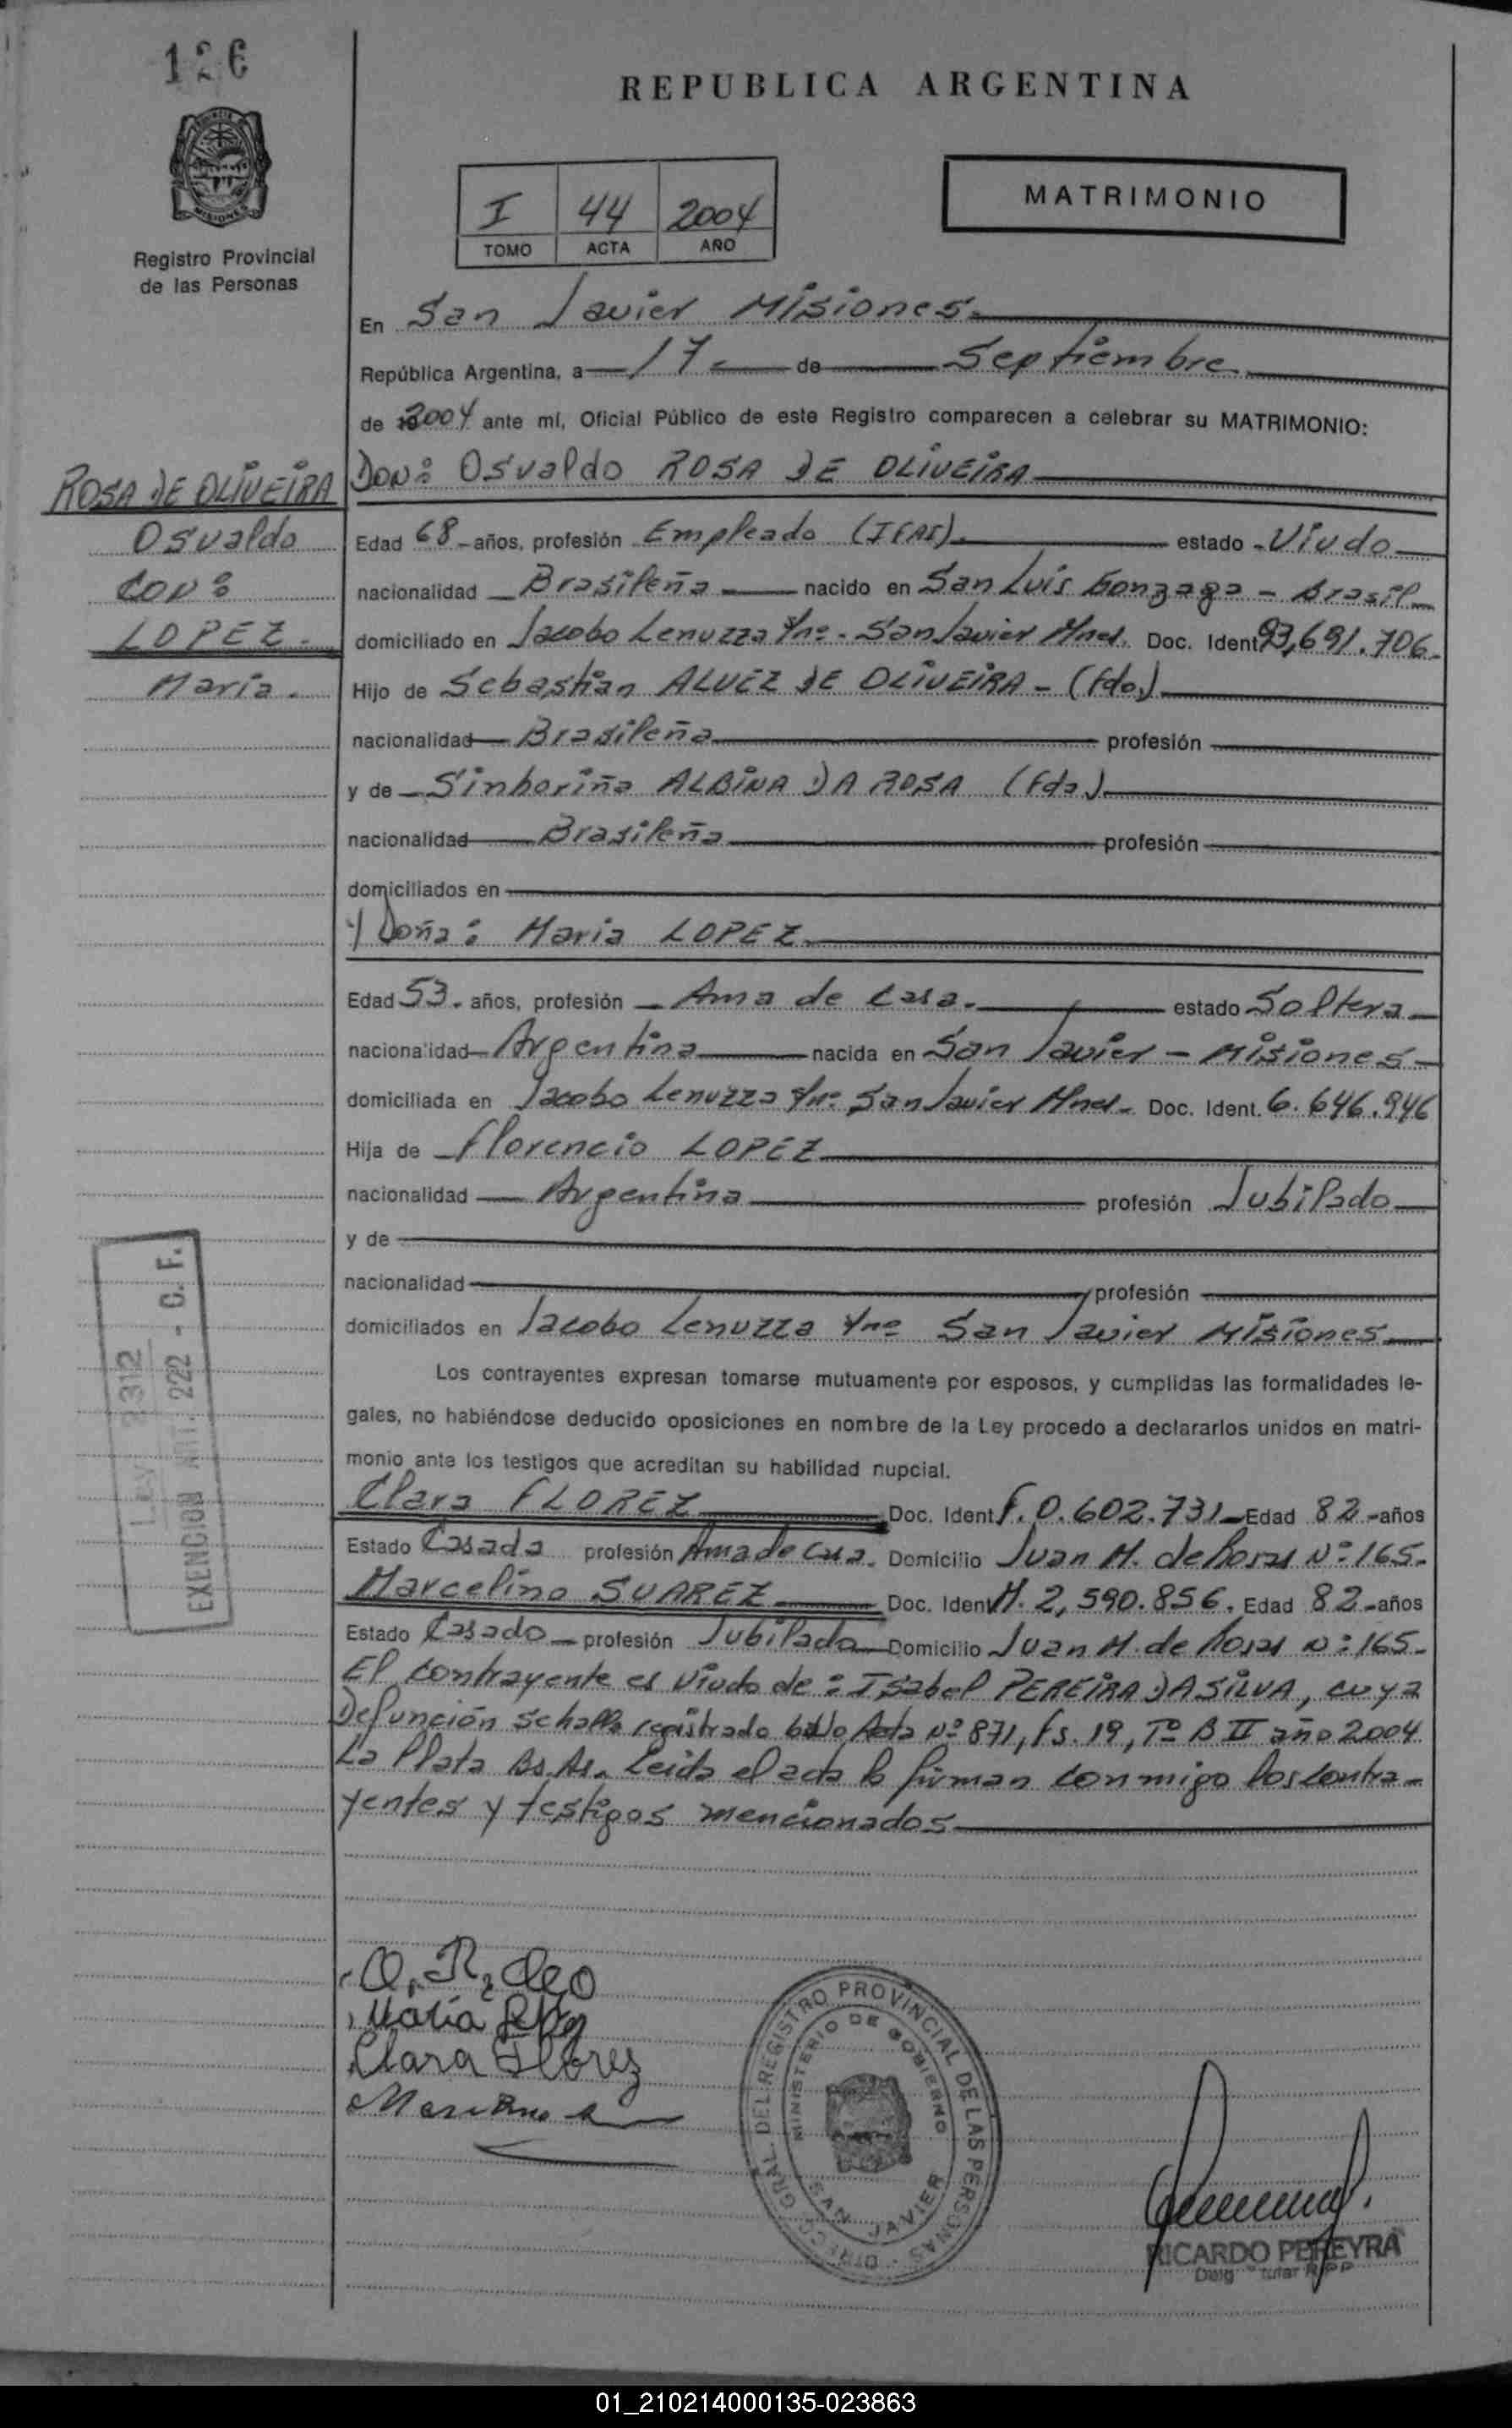 126
REPUBLICA ARGENTINA
PROVINCIA DE
MISIONES
Registro Provincial
de las Personas
I 44 2004
TOMO ACTA AÑO
MATRIMONIO
En San Javier Misiones.
República Argentina, a 17 de Septiembre
de 2004 ante mí, Oficial Público de este Registro comparecen a celebrar su MATRIMONIO:
ROSA DE OLIVEIRA
Osvaldo
CON:
LOPEZ.
María.
DON: Osvaldo ROSA DE OLIVEIRA
Edad 68 años, profesión Empleado estado Viudo
nacionalidad Brasileña nacido en San Luis Gonzaga - Brasil
domiciliado en Jacobo Lenuzza s/nº. San Javier Mnes. Doc. Ident 93,691.706.
Hijo de Sebastián ALVEZ DE OLIVEIRA - (fdo.)
nacionalidad Brasileña profesión
y de Sinhoriña ALBINA DA ROSA (fda.)
nacionalidad Brasileña profesión
domiciliados en
y Doña: Maria LOPEZ.
Edad 53. años, profesión Ama de Casa. estado Soltera
nacionalidad Argentina nacida en San Javier - Misiones
domiciliada en Jacobo Lenuzza s/nº San Javier Mnes. Doc. Ident. 6.646.946
Hija de Florencio LOPEZ
nacionalidad Argentina profesión Jubilado
y de
nacionalidad profesión
domiciliados en Jacobo Lenuzza s/nº San Javier Misiones
Los contrayentes expresan tomarse mutuamente por esposos, y cumplidas las formalidades le-
gales, no habiéndose deducido oposiciones en nombre de la Ley procedo a declararlos unidos en matri-
monio ante los testigos que acreditan su habilidad nupcial.
Clara FLOREZ Doc. Ident F. 0.602.731 Edad 82 años
Estado Casada profesión Ama de Casa. Domicilio Juan M. de Rosas Nº 165.
Marcelino SUAREZ Doc. Ident M. 2,590.856. Edad 82 años
Estado Casado profesión Jubilado Domicilio Juan M. de Rosas Nº 165.
El contrayente es Viudo de: Isabel PEREIRA DA SILVA, cuya
Defunción se halla registrado bajo Acta Nº 871, fs. 19, Tº B II año 2004
La Plata Bs. As. Leída el acta la firman conmigo los contra-
yentes y testigos mencionados
LEY 3312
EXENCION ART. 222 - C. F.
O. R, deo
María Lopez
Clara Florez
DIRECC. GRAL. DEL REGISTRO PROVINCIAL DE LAS PERSONAS
MINISTERIO DE GOBIERNO
SAN JAVIER
RICARDO PEREYRA
01_210214000135-023863